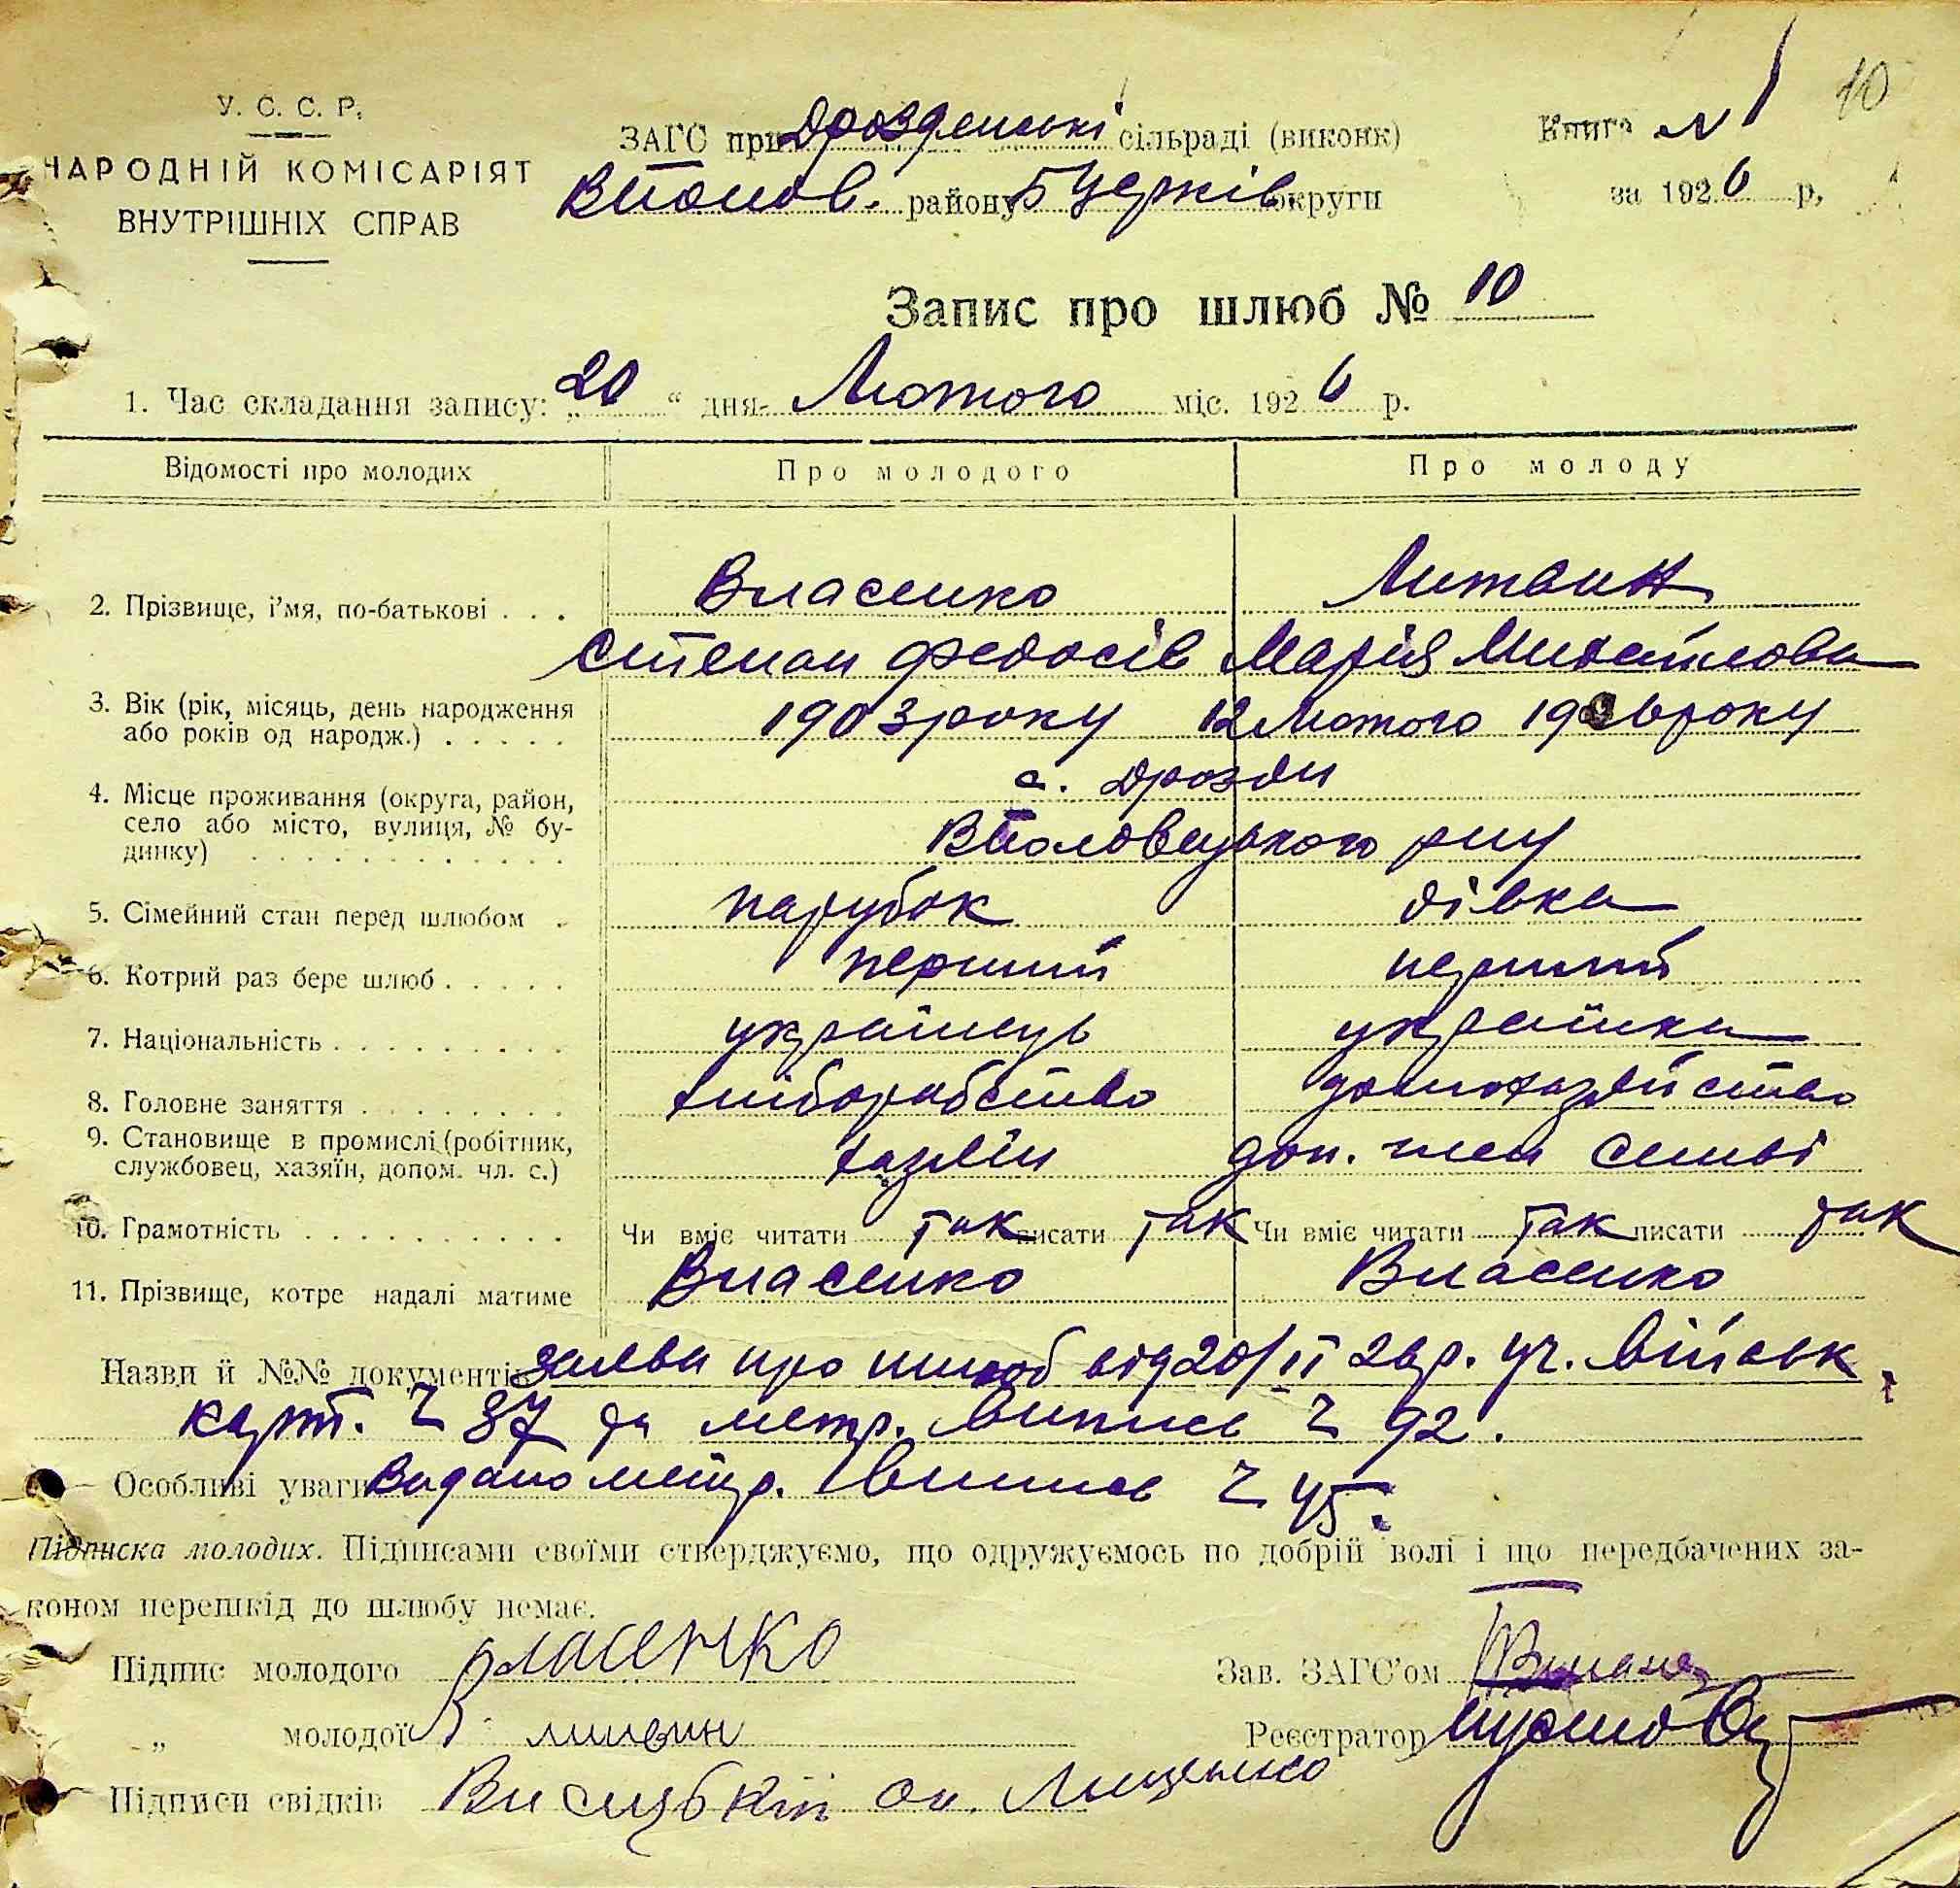 У. С. С. Р.
НАРОДНІЙ КОМІСАРІЯТ
ВНУТРІШНІХ СПРАВ
ЗАГС при Дрозденські сільраді (виконк)
району Б Церків округи
Книга № 1
10
за 1926 р,
Запис про шлюб № 10
1. Час складання запису: „20“ дня Лютого міс. 1926 р.
Відомості про молодих Про молодого Про молоду
2. Прізвище, і'мя, по-батькові . . . Власенко Литвин
Степан Федосів Марія Михайлова
3. Вік (рік, місяць, день народження 1903 року 12 Лютого 1906 року
або років од народж.) . . . . .
с. Дрозди
4. Місце проживання (округа, район,
село або місто, вулиця, № бу-
динку) . . . . . . . . . . . . ВПоловецького р-ну
5. Сімейний стан перед шлюбом . парубок дівка
6. Котрий раз бере шлюб . . . . . перший перший
7. Національність . . . . . . . . . українець українка
8. Головне заняття . . . . . . . . хліборобство домохазяйство
9. Становище в промислі (робітник,
службовец, хазяїн, допом. чл. с.) хазяїн доп. член семьі
10. Грамотність . . . . . . . . . . . Чи вміє читати так писати так Чи вміє читати так писати так
11. Прізвище, котре надалі матиме Власенко Власенко
Назви й №№ документів заява про шлюб від 20/II 26 р. уч. військ
карт. Ч 37 та метр. випись Ч 92.
Особливі уваги Видано метр. випись Ч 45.
Підписка молодих. Підписами своїми стверджуємо, що одружуємось по добрій волі і що передбачених за-
коном перешкід до шлюбу немає.
Підпис молодого Власенко
Зав. ЗАГС'ом
„ молодої Литвин
Реєстратор
Підписи свідків Лищенко